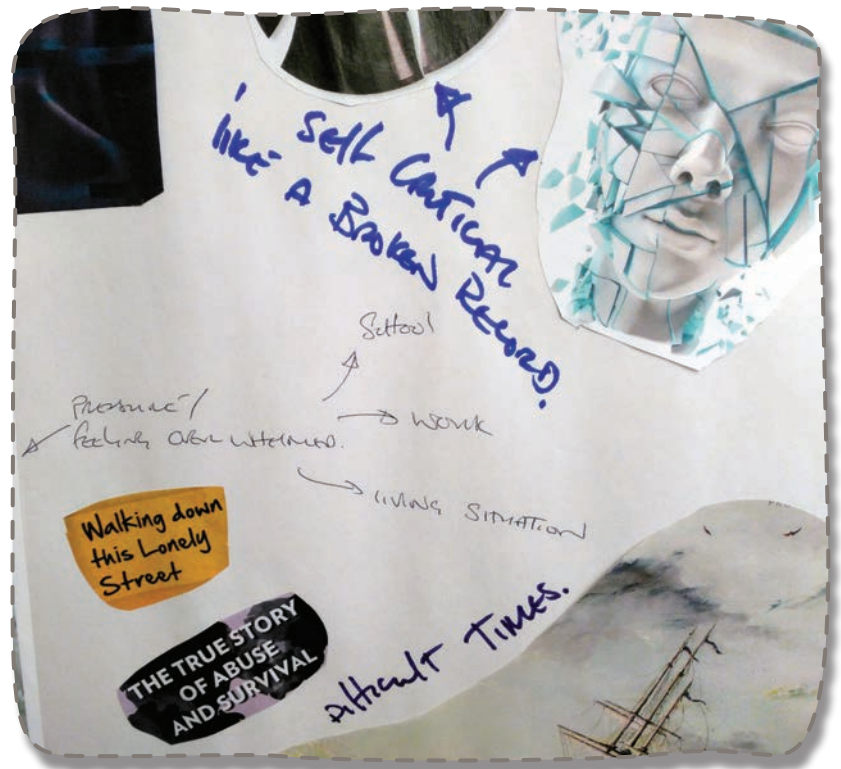 Self Critical
like A Broken Record.
School
Pressure/
feeling over whelmed.
Work
living situation
Walking down
this Lonely
Street
THE TRUE STORY
OF ABUSE
AND SURVIVAL
Difficult Times.